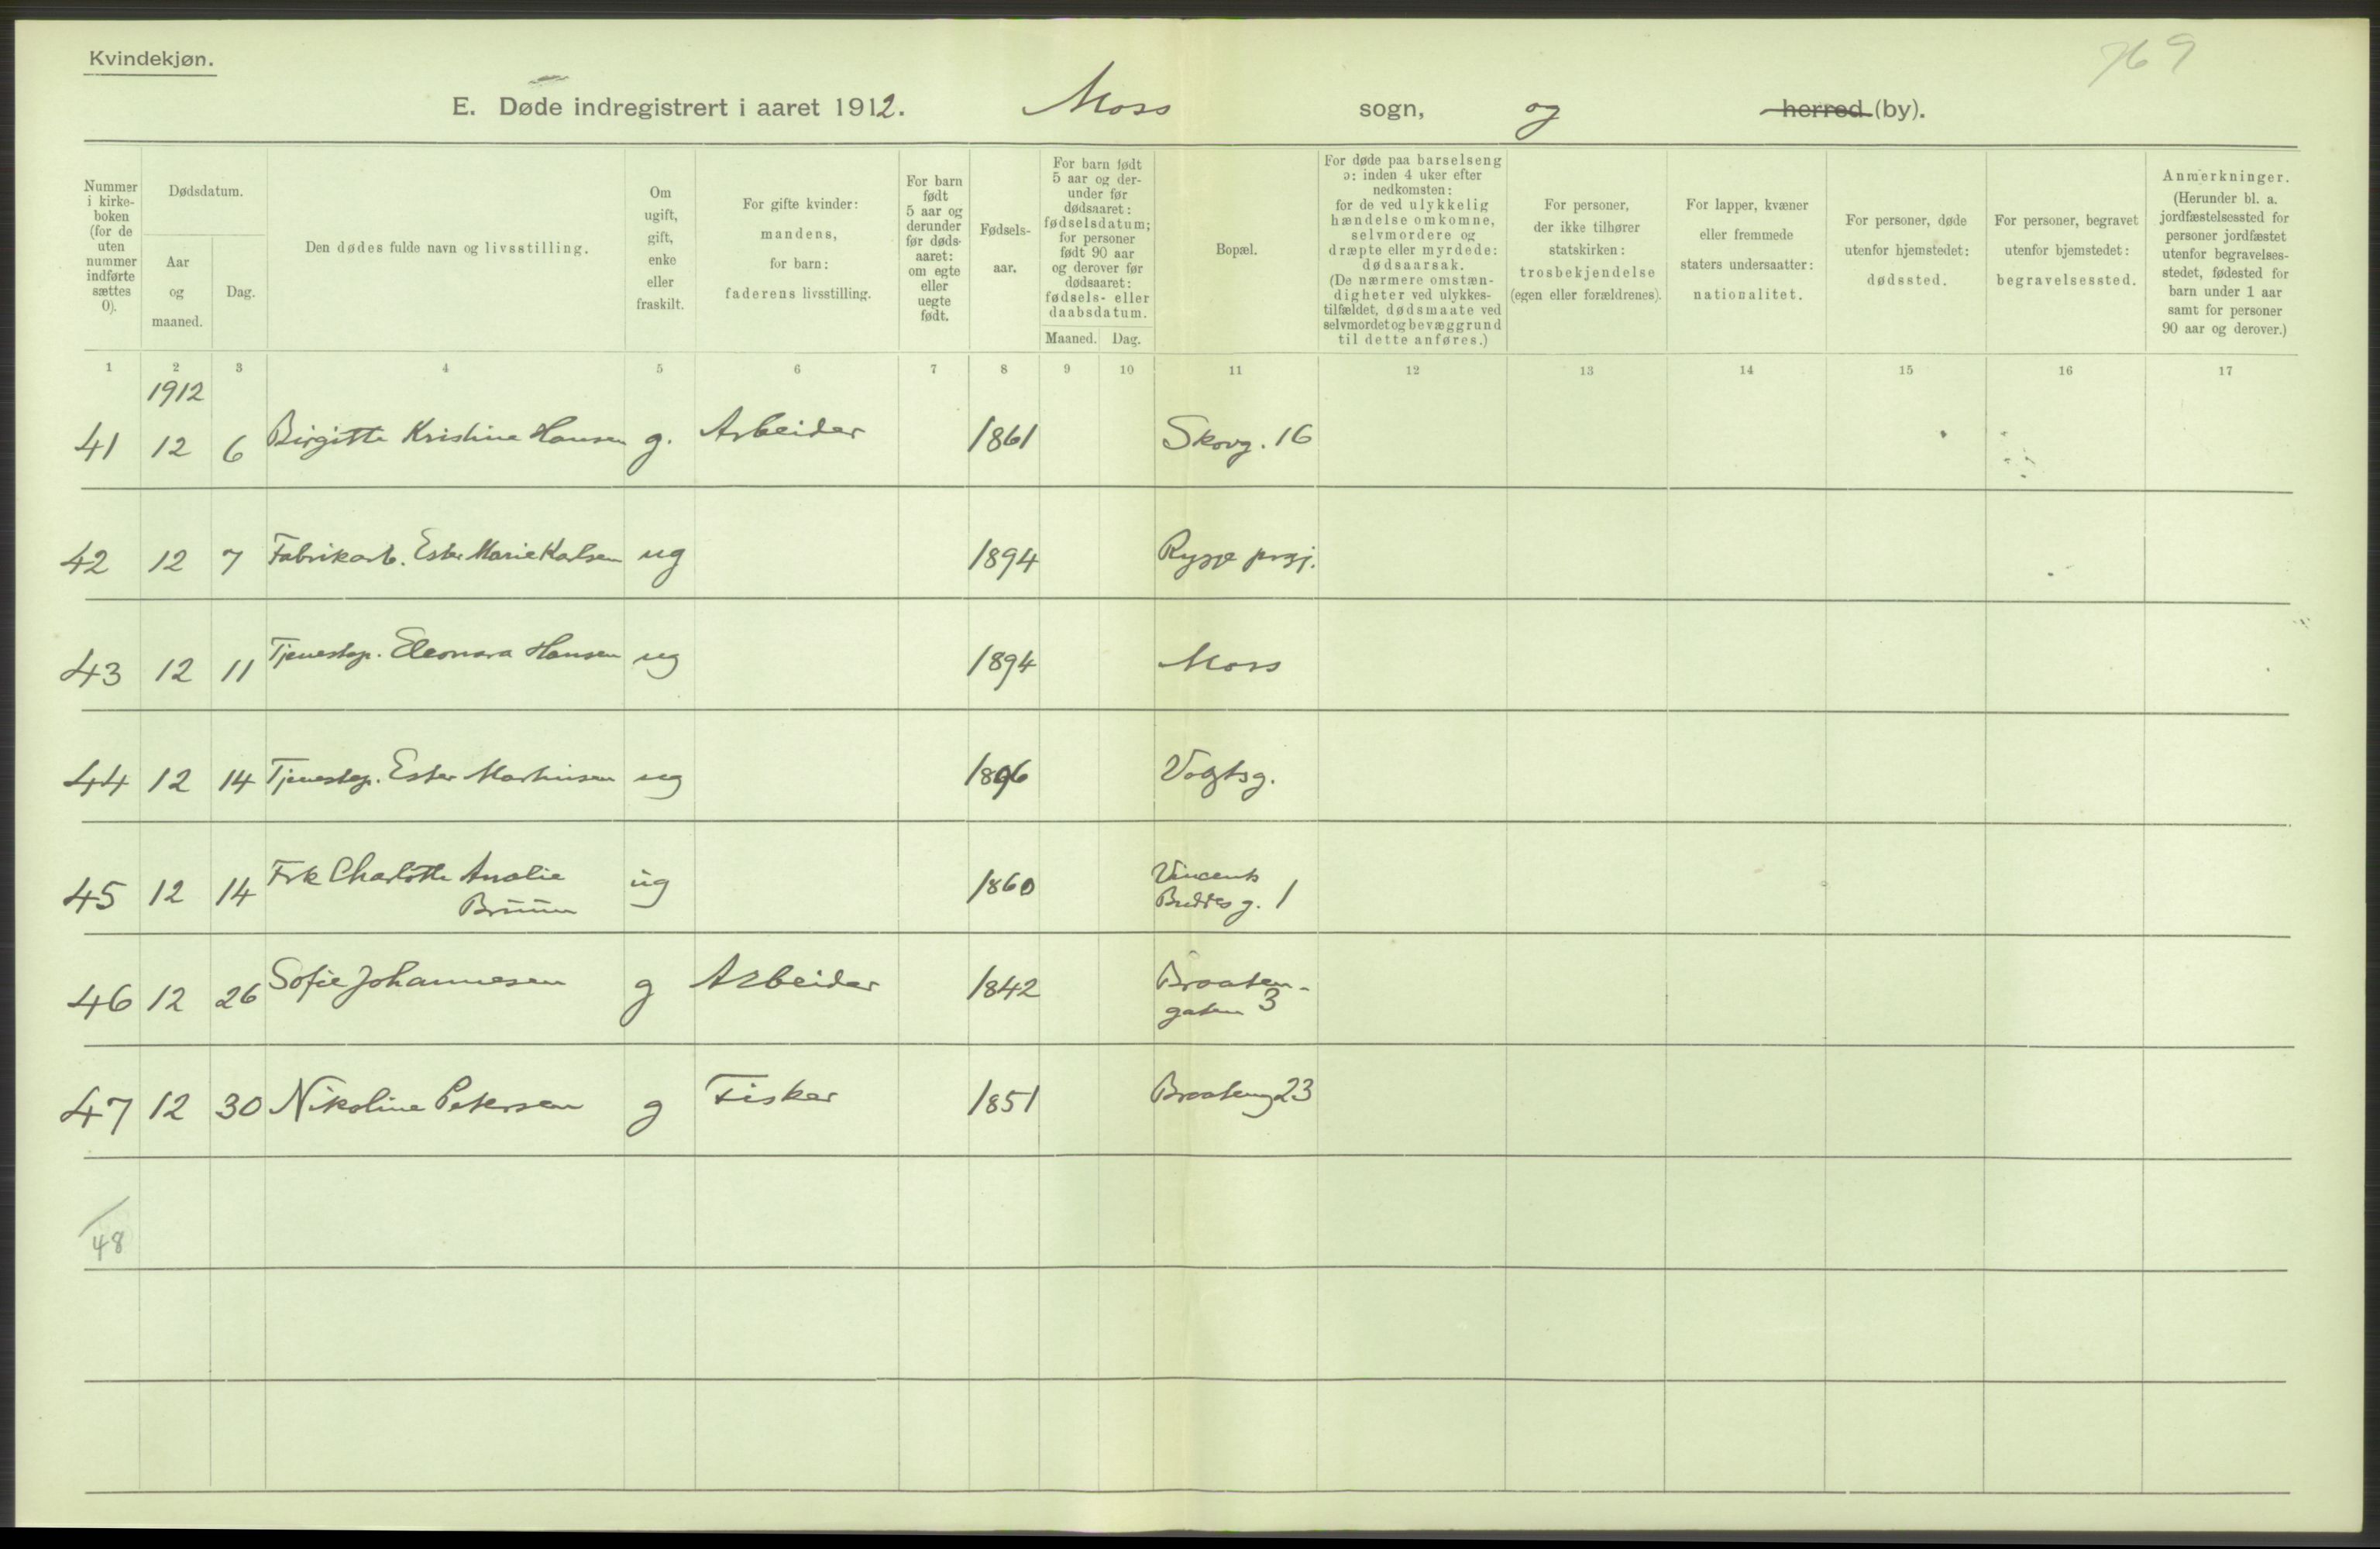 Kvindekjøn.
769
E. Døde indregistrert i aaret 1912. Moss sogn, og herred (by).
Nummer i kirke-boken (for de uten nummer indførte sættes 0).
Dødsdatum.
Aar og maaned.
Dag.
Den dødes fulde navn og livsstilling.
Om ugift, gift, enke eller fraskilt.
For gifte kvinder: mandens, for barn: faderens livsstilling.
For barn født 5 aar og derunder før døds-aaret: om egte eller uegte født.
Fødsels-aar.
For barn født 5 aar og der-under før dødsaaret: fødselsdatum; for personer født 90 aar og derover før dødsaaret: fødsels- eller daabsdatum.
Maaned. Dag.
Bopæl.
For døde paa barselseng ɔ: inden 4 uker efter nedkomsten: for de ved ulykkelig hændelse omkomne, selvmordere og dræpte eller myrdede: dødsaarsak. (De nærmere omstæn-digheter ved ulykkes-tilfældet, dødsmaate ved selvmordet og bevæggrund til dette anføres.)
For personer, der ikke tilhører statskirken: trosbekjendelse (egen eller forældrenes).
For lapper, kvæner eller fremmede staters undersaatter: nationalitet.
For personer, døde utenfor hjemstedet: dødssted.
For personer, begravet utenfor hjemstedet: begravelsessted.
Anmerkninger. (Herunder bl. a. jordfæstelsessted for personer jordfæstet utenfor begravelses-stedet, fødested for barn under 1 aar samt for personer 90 aar og derover.)
1 2 3 4 5 6 7 8 9 10 11 12 13 14 15 16 17
1912
41 12 6 Birgitte Kristine Hansen g. Arbeider 1861 Skovg. 16
42 12 7 Fabrikarb. Ester Marie Karlsen ug 1894 Rygge prgj.
43 12 11 Tjenestep. Eleonora Hansen ug 1894 Moss
44 12 14 Tjenestep. Ester Martinsen ug 1896 Vogtsg.
45 12 14 Frk Charlotte Amalie ug 1860 Vincents
Bruun Buddes g. 1
46 12 26 Sofie Johannesen g Arbeider 1842 Braaten-
gaten 3
47 12 30 Nikoline Petersen g Fisker 1851 Braateng 23
48